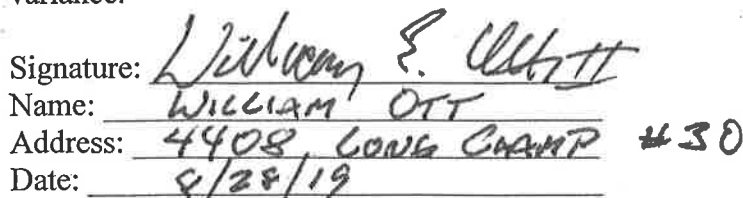 variance.
Signature: William E. Ott II
Name: WILLIAM OTT
Address: 4408 LONG CHAMP #30
Date: 8/28/19